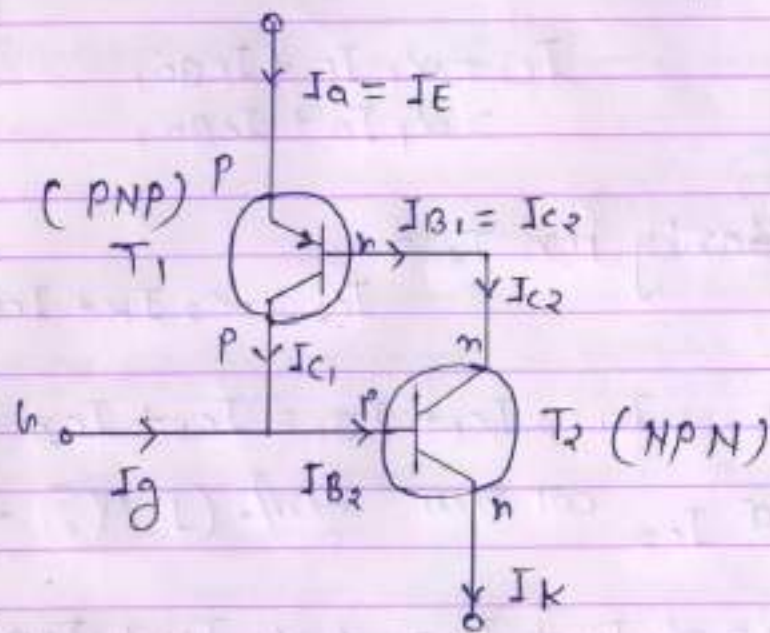 Ia = IE
(PNP) P
T1
n
IB1 = IC2
IC2
P
IC1
n
G
Ig
P
IB2
T2 (NPN)
n
IK